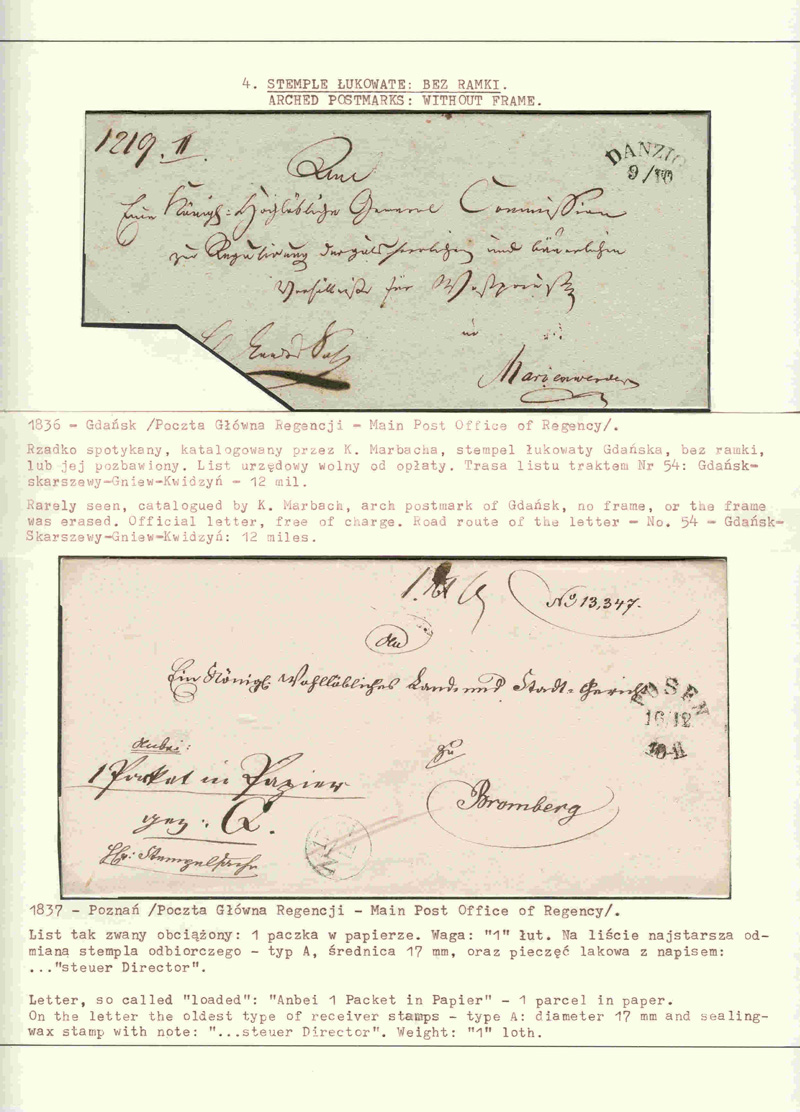 4. STEMPLE ŁUKOWATE: BEZ RAMKI.
ARCHED POSTMARKS: WITHOUT FRAME.
1219. II.
DANZIG
9/10
An
Eine Königl: Hochlöbliche General Commission
zur Regulirung der gutsherrlichen und bäuerlichen
Verhältnisse für Westpreußen
in
Marienwerder
1836 - Gdańsk /Poczta Główna Regencji - Main Post Office of Regency/.
Rzadko spotykany, katalogowany przez K. Marbacha, stempel łukowaty Gdańska, bez ramki,
lub jej pozbawiony. List urzędowy wolny od opłaty. Trasa listu traktem Nr 54: Gdańsk-
skarszewy-Gniew-Kwidzyń - 12 mil.
Rarely seen, catalogued by K. Marbach, arch postmark of Gdańsk, no frame, or the frame
was erased. Official letter, free of charge. Road route of the letter - No. 54 - Gdańsk-
Skarszewy-Gniew-Kwidzyń: 12 miles.
No 13,347.
An
Ein Königl. Wohllöbliches Land- und Stadt-Gericht
POSEN
10/12
10-11
Anbei:
1 Packet in Papier
zu
gez: Q.
Bromberg
Hbr: Stempelsache
1837 - Poznań /Poczta Główna Regencji - Main Post Office of Regency/.
List tak zwany obciążony: 1 paczka w papierze. Waga: "1" łut. Na liście najstarsza od-
mianą stempla odbiorczego - typ A, średnica 17 mm, oraz pieczęć lakowa z napisem:
..."steuer Director".
Letter, so called "loaded": "Anbei 1 Packet in Papier" - 1 parcel in paper.
On the letter the oldest type of receiver stamps - type A: diameter 17 mm and sealing-
wax stamp with note: "...steuer Director". Weight: "1" loth.